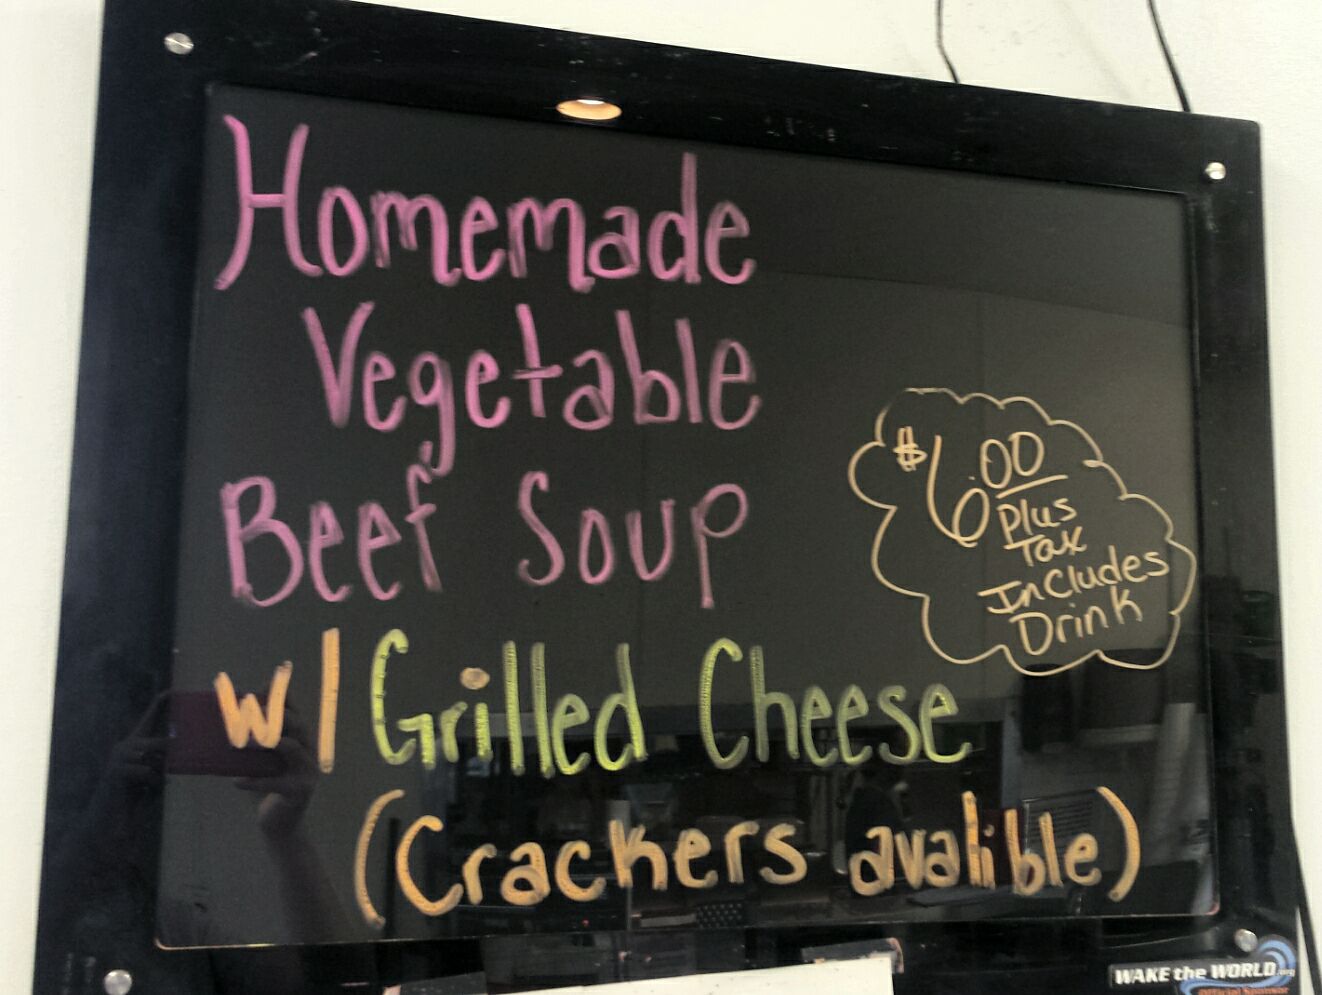 Homemade
Vegetable
Beef Soup
w/ Grilled Cheese
(Crackers avalible)
$6.00
Plus
Tax
Includes
Drink
WAKE the WORLD.org
Official Sponsor